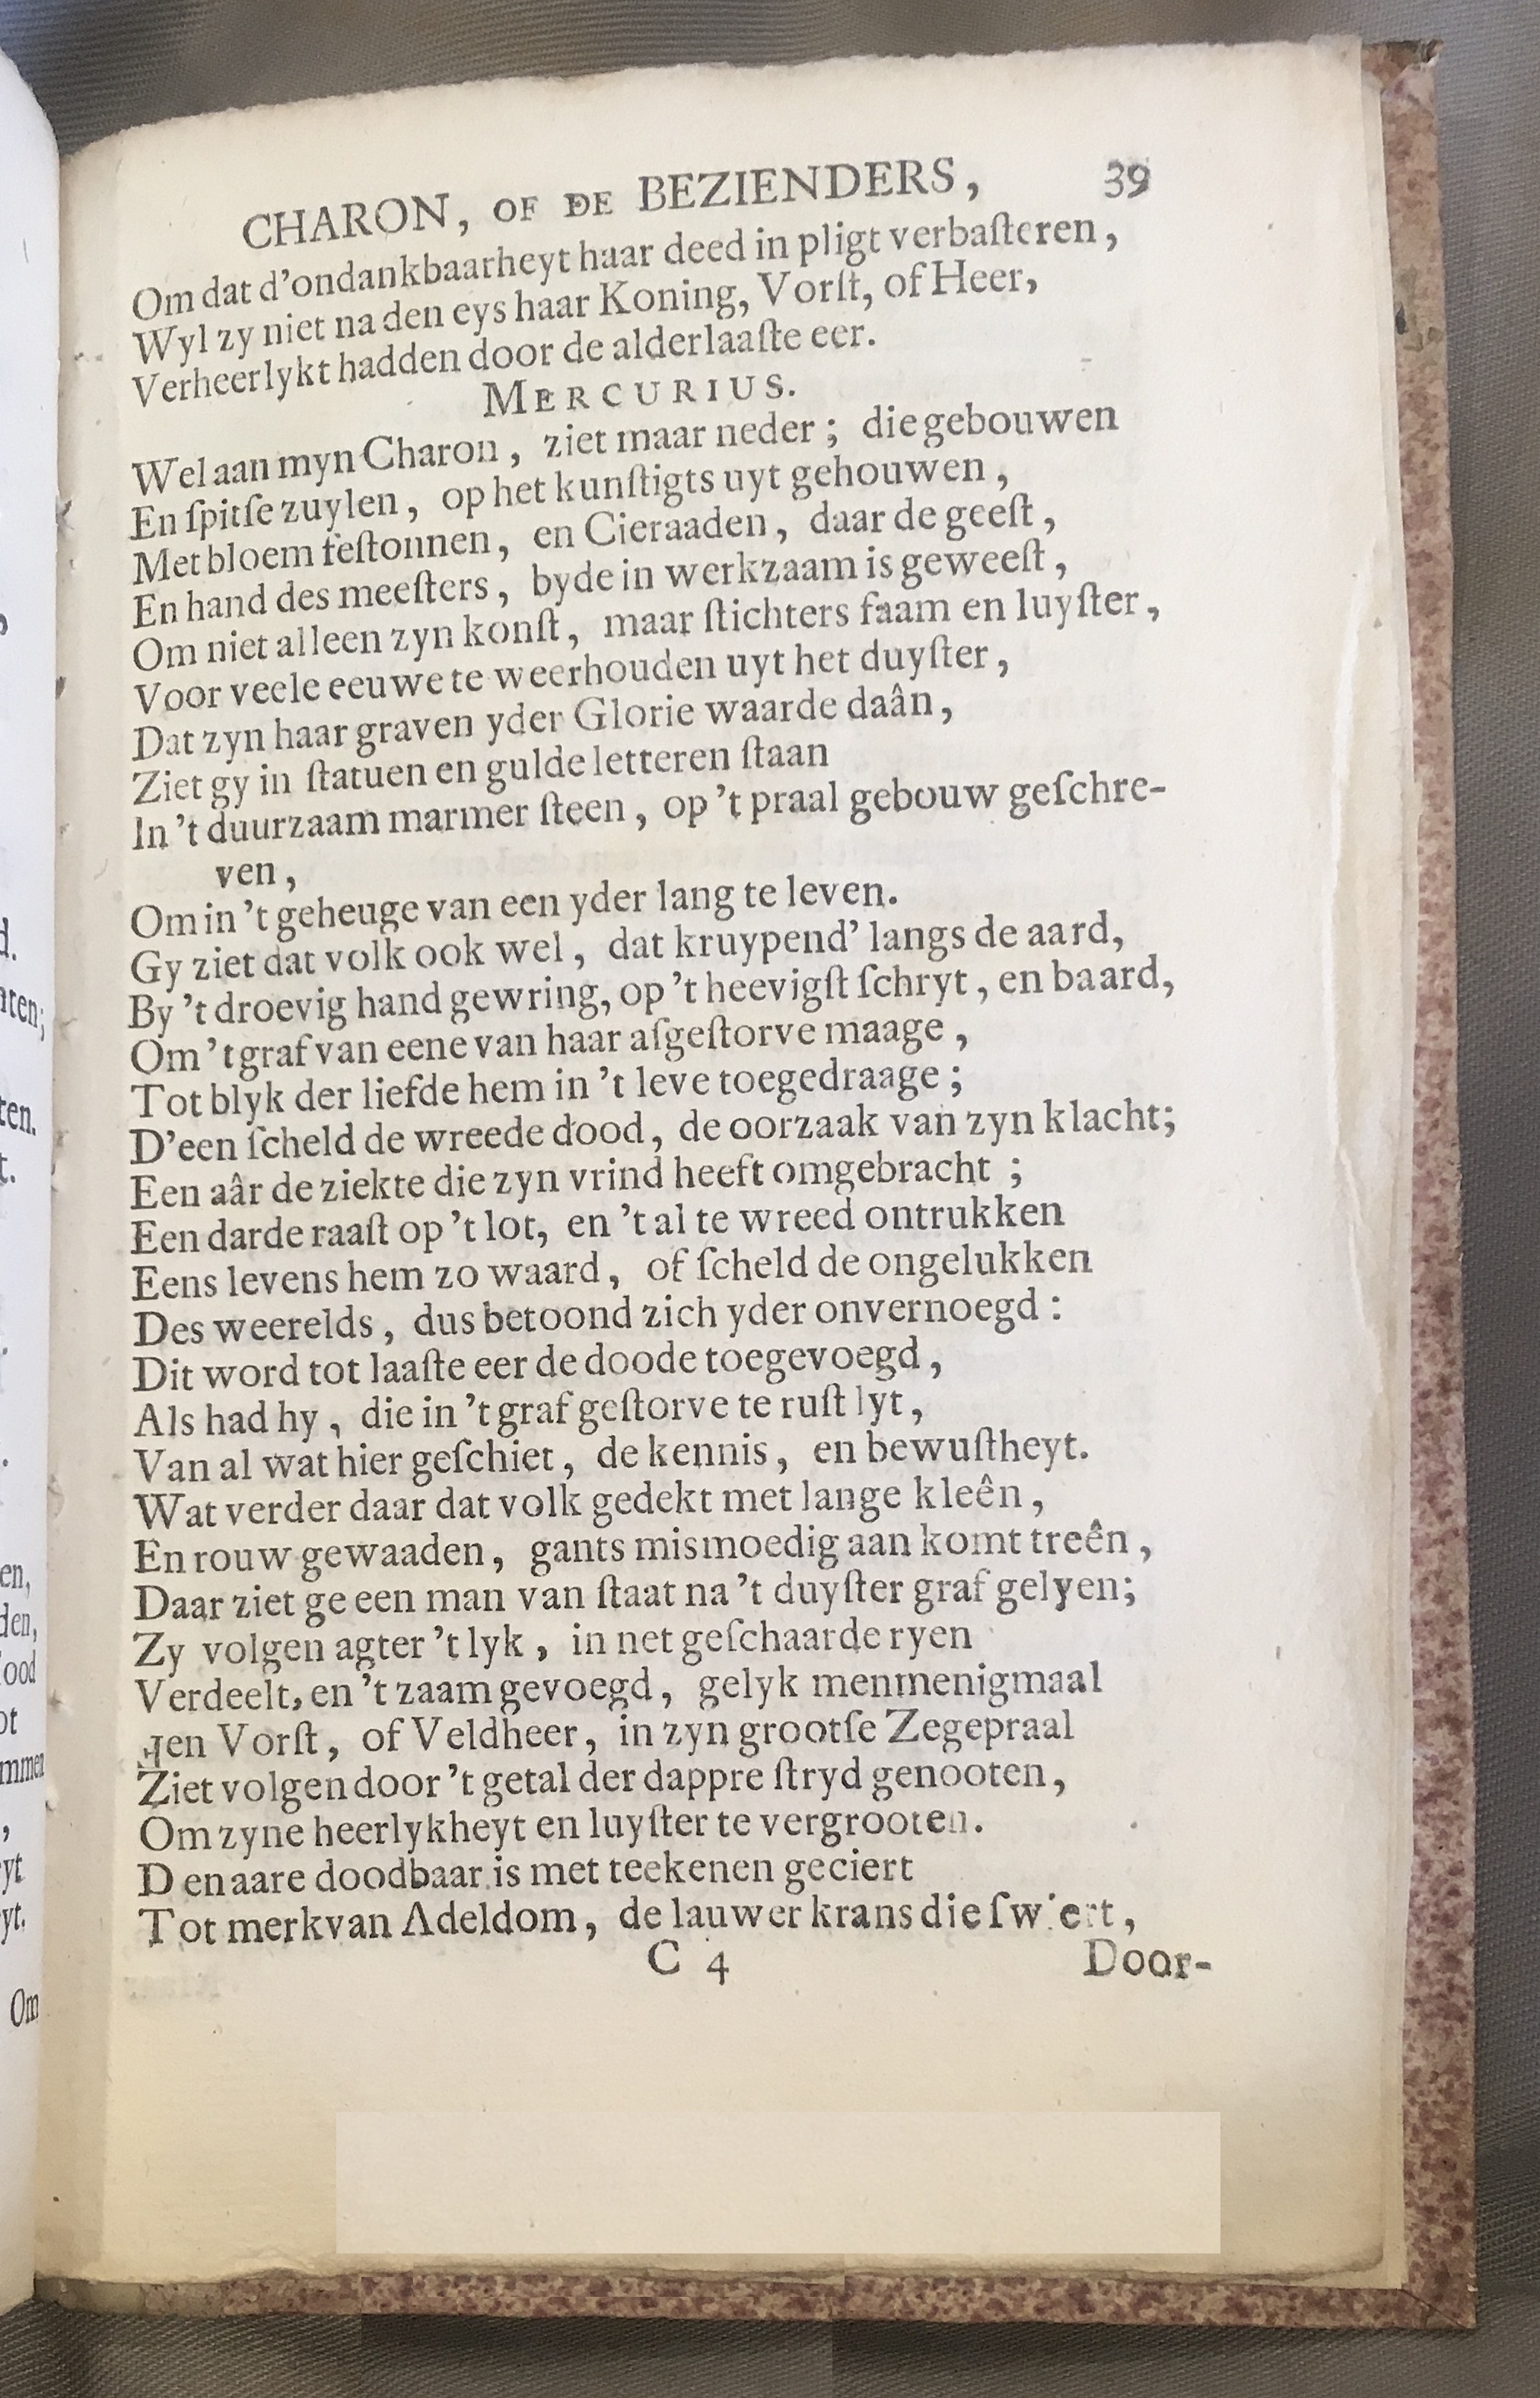 CHARON, OF DE BEZIENDERS, 39
Om dat d'ondankbaarheyt haar deed in pligt verbaſteren,
Wyl zy niet na den eys haar Koning, Vorſt, of Heer,
Verheerlykt hadden door de alderlaaſte eer.
MERCURIUS.
Wel aan myn Charon, ziet maar neder; die gebouwen
En ſpitſe zuylen, op het kunſtigts uyt gehouwen,
Met bloem feſtonnen, en Cieraaden, daar de geeſt,
En hand des meeſters, byde in werkzaam is geweeſt,
Om niet alleen zyn konſt, maar ſtichters faam en luyſter,
Voor veele eeuwe te weerhouden uyt het duyſter,
Dat zyn haar graven yder Glorie waarde daân,
Ziet gy in ſtatuen en gulde letteren ſtaan
In 't duurzaam marmer ſteen, op 't praal gebouw geſchre-
ven,
Om in 't geheuge van een yder lang te leven.
Gy ziet dat volk ook wel, dat kruypend' langs de aard,
By 't droevig hand gewring, op 't heevigſt ſchryt, en baard,
Om 't graf van eene van haar afgeſtorve maage,
Tot blyk der liefde hem in 't leve toegedraage;
D'een ſcheld de wreede dood, de oorzaak van zyn klacht;
Een aâr de ziekte die zyn vrind heeft omgebracht;
Een darde raaſt op 't lot, en 't al te wreed ontrukken
Eens levens hem zo waard, of ſcheld de ongelukken
Des weerelds, dus betoond zich yder onvernoegd:
Dit word tot laaſte eer de doode toegevoegd,
Als had hy, die in 't graf geſtorve te ruſt lyt,
Van al wat hier geſchiet, de kennis, en bewuſtheyt.
Wat verder daar dat volk gedekt met lange kleên,
En rouw gewaaden, gants mismoedig aan komt treên,
Daar ziet ge een man van ſtaat na 't duyſter graf gelyen;
Zy volgen agter 't lyk, in net geſchaarde ryen
Verdeelt, en 't zaam gevoegd, gelyk men menigmaal
en Vorſt, of Veldheer, in zyn grootſe Zegepraal
Ziet volgen door 't getal der dappre ſtryd genooten,
Om zyne heerlykheyt en luyſter te vergrooten.
D en aare doodbaar is met teekenen geciert
Tot merk van Adeldom, de lauwer krans die ſwiert,
C 4 Door-